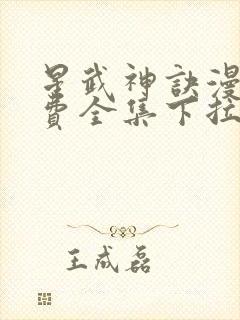 星武神訣漫
費全集下拉
王成磊